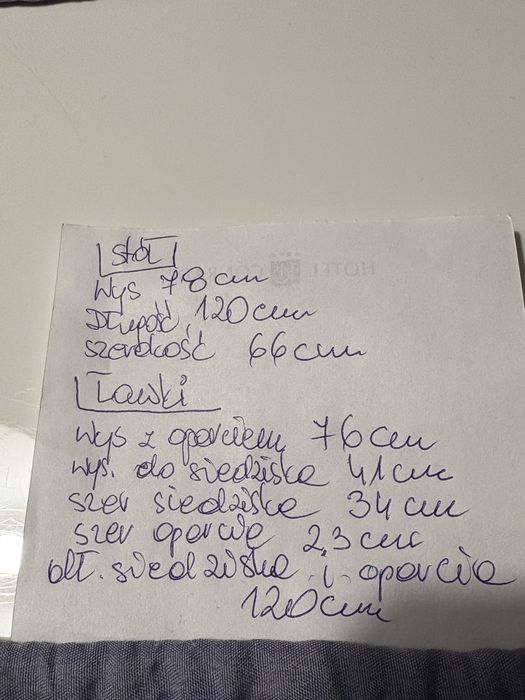 Stół
Wys 78cm
Długość 120cm
szerokość 66cm
Ławki
Wys z oparciem 76cm
wys. do siedziska 41cm
szer siedziska 34cm
szer oparcia 2,3cm
dł. siedziska i oparcia
120cm